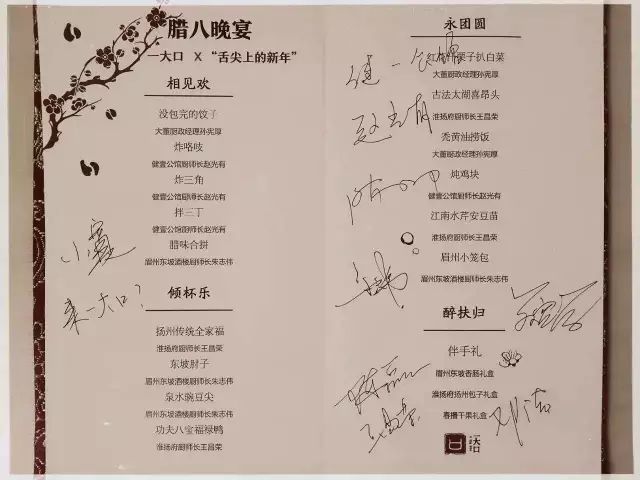 腊八晚宴
一大口 X “舌尖上的新年”
相见欢
没包完的饺子
大董厨政经理孙宪厚
炸咯吱
健壹公馆厨师长赵光有
炸三角
健壹公馆厨师长赵光有
拌三丁
健壹公馆厨师长赵光有
腊味合拼
眉州东坡酒楼厨师长朱志伟
来一大口？
倾杯乐
扬州传统全家福
淮扬府厨师长王昌荣
东坡肘子
眉州东坡酒楼厨师长朱志伟
泉水豌豆尖
眉州东坡酒楼厨师长朱志伟
功夫八宝福禄鸭
淮扬府厨师长王昌荣
永团圆
栗子扒白菜
大董厨政经理孙宪厚
古法太湖喜昂头
淮扬府厨师长王昌荣
秃黄油捞饭
大董厨政经理孙宪厚
炖鸡块
健壹公馆厨师长赵光有
江南水芹安豆苗
淮扬府厨师长王昌荣
眉州小笼包
眉州东坡酒楼厨师长朱志伟
醉扶归
伴手礼
眉州东坡香肠礼盒
淮扬府扬州包子礼盒
春播干果礼盒
王昌荣